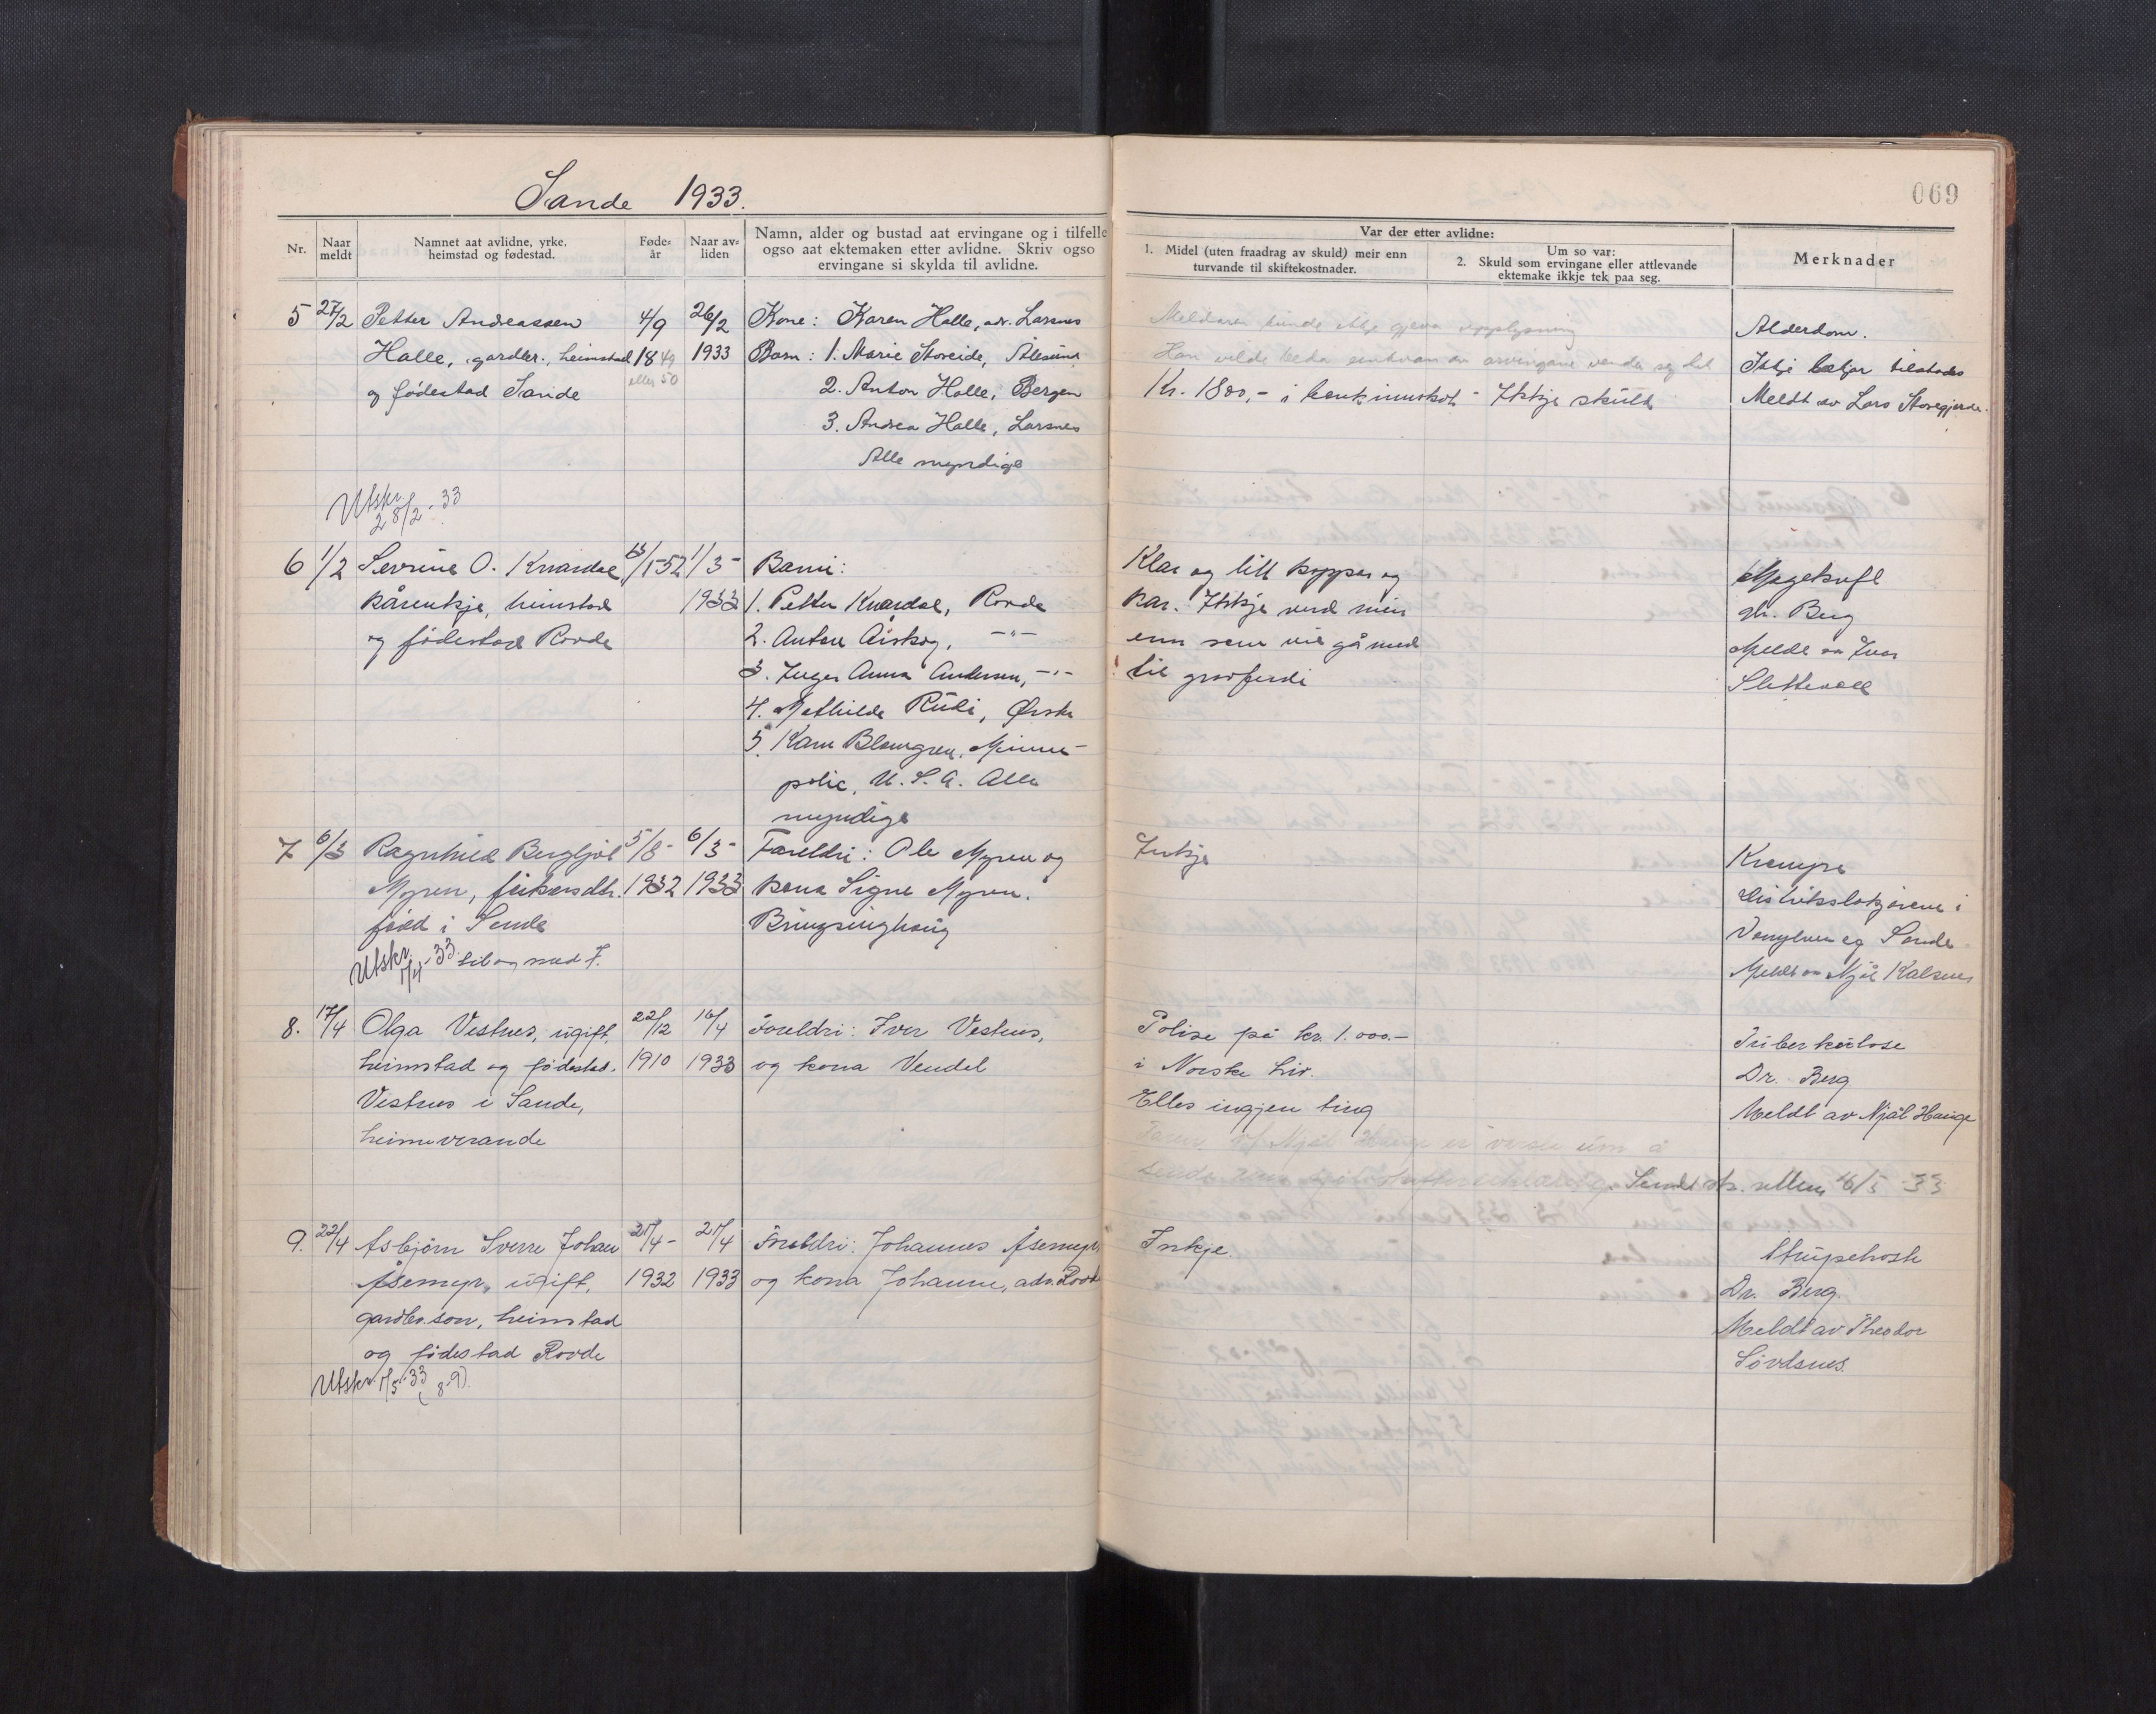 Sande 1933.
069
Nr.
Naar meldt
Namnet aat avlidne, yrke. heimstad og fødestad.
Føde-år
Naar av-liden
Namn, alder og bustad aat ervingane og i tilfelle
ogso aat ektemaken etter avlidne. Skriv ogso
ervingane si skylda til avlidne.
Var der etter avlidne:
1. Midel (uten fraadrag av skuld) meir enn
turvande til skiftekostnader.
Um so var:
2. Skuld som ervingane eller attlevande
ektemake ikkje tek paa seg.
Merknader
5 27/2 Petter Andreassen 4/9 26/2 Kone: Karen Halle, adr. Larsnes
Halle, gardbr., heimstad 1849 1933 Born: 1. Marie Storeide, Ålesund
og fødestad Sande eller 50 2. Anton Halle, Bergen
3. Andrea Halle, Larsnes
Alle myndige
Meldaren kunde ikkje gjeva upplysning
Han vilde beda einkvan av arvingane venda seg hit
Kr. 1800,- i bankinnskot - Ikkje skuld
Alderdom.
Ikkje lækjar tilstades
Meldt av Lars Storegjerde.
Utskr. 28/2-33
6 1/2 Sevrine O. Knardal 1-52 1/3-
kårenkje, heimstad 1933
og fødestad Rovde
Born:
1. Petter Knardal, Rovde
2. Anton Aiskog, -"-
3. Inger Anna Andersen, -"-
4. Mathilde Rudi, Ørsta
5. Karn Blomgren, Minne-
polis, U.S.A. Alle
myndige
Klær og litt kopper og
kar. Ikkje verd meir
enn som vil gå med
til gravferdi
Magekreft
Dr. Berg
Meldt av Ivar
Slettevoll
7 6/3 Ragnhild Bergljot 5/8- 6/3- Foreldri: Ole Myren og
Myren, fiskarsdtr. 1932 1933 kona Signe Myren.
fødd i Sande Bringsinghaug
Utskr. 1/4-33 til og med 7.
Inkje
Krampe
Distriktslækjarene i
Vanylven og Sande
Meldt av Njål Kalsnes
8. 17/4 Olga Vestnes, ugift, 22/12 16/4 Foreldri: Iver Vestnes,
heimstad og fødestad. 1910 1933 og kona Vendel
Vestnes i Sande,
heimeverande
Polise på kr. 1.000.-
i Norske Liv.
Elles ingjen ting
Tuberkulose
Dr. Berg
Meldt av Njål Hauge
Faren v/ Njål Hauge er varsla um å
senda
Sendt 16/5 33
9. 22/4 Asbjørn Sverre Johan 21/4- 21/4 Foreldri: Johannes Åsemyr,
Åsemyr, ugift, 1932 1933 og kona Johanne, adr. Rovde
gardbr.son, heimstad
og fødestad Rovde
Utskr. 1/5-33 (8-9).
Inkje.
Strupehoste
Dr. Berg.
Meldt av Theodor
Søvdsnes.